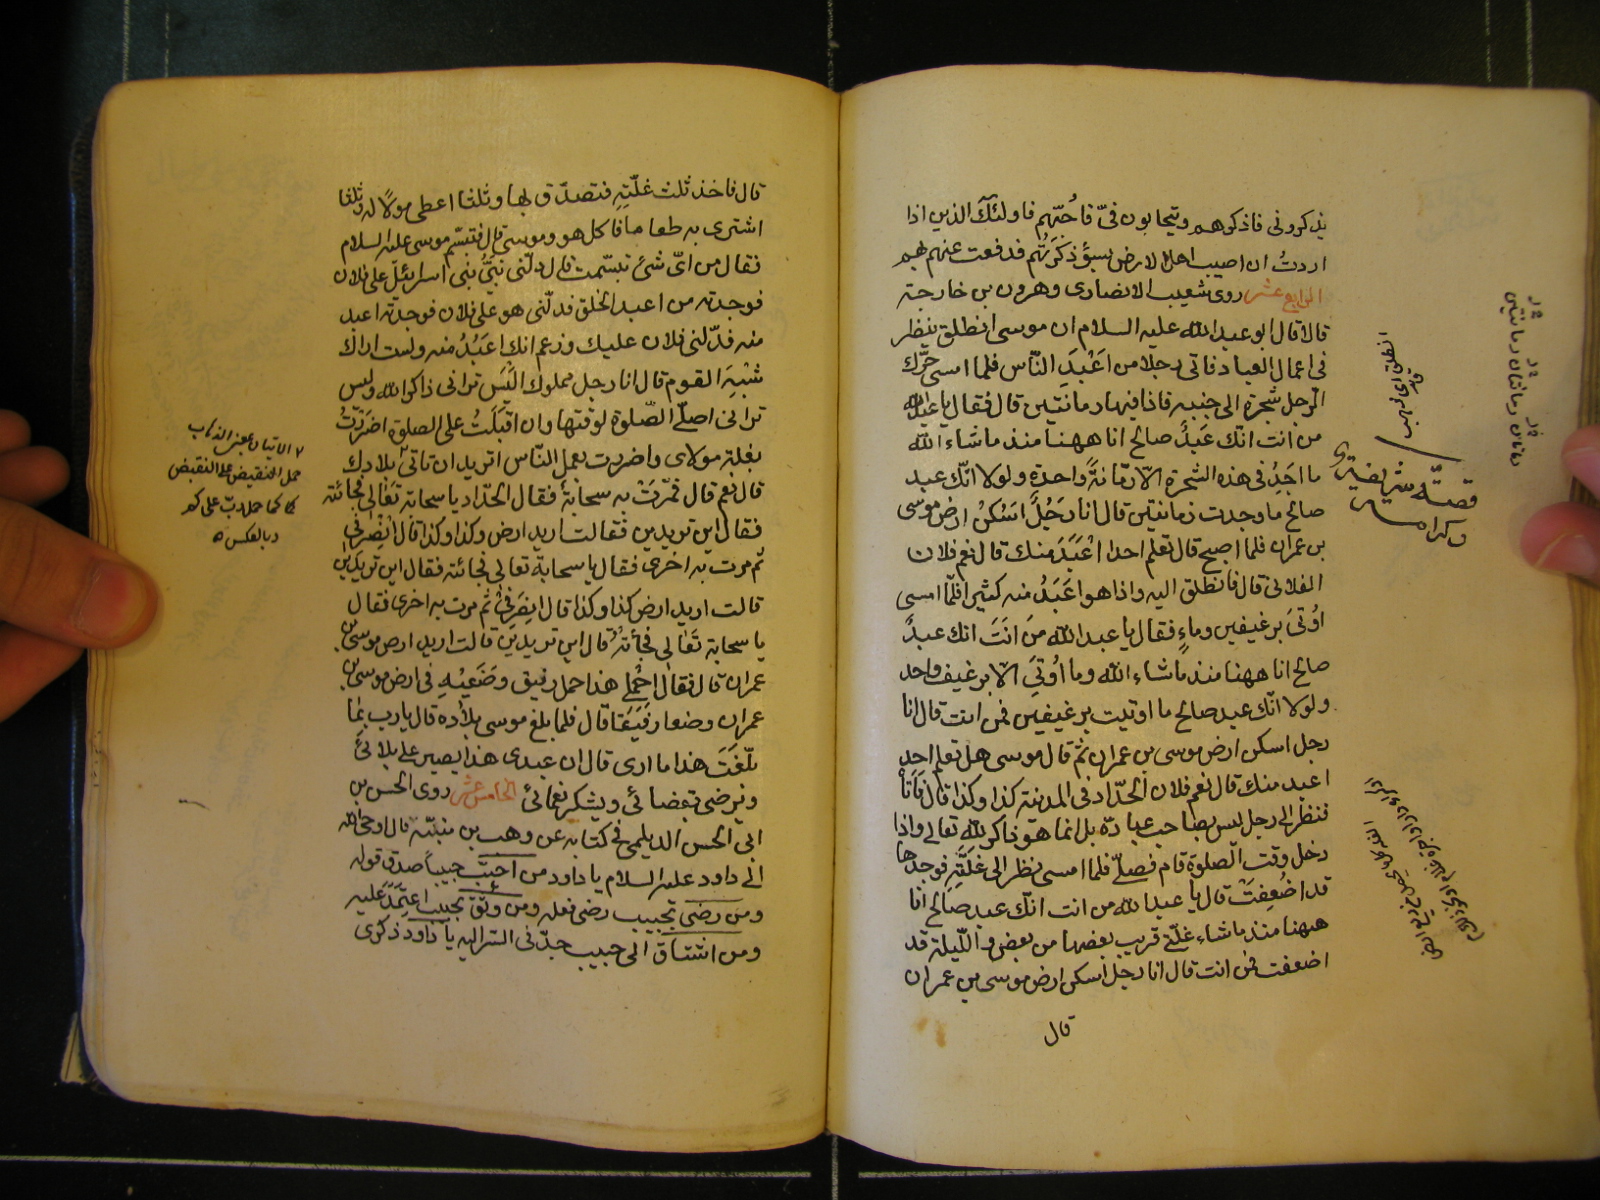 يذكروني فاذكرهم ويتحابون فيّ فاُحبّهم فاولئك الذين اذا
اردتُ ان اصيب اهل الارض بسؤ ذكرتُهم فدفعت عنهم بهم
الرابع عشر روى شعيب الانصارى وهرون بن خارجة
قالا قال ابو عبد الله عليه السلام ان موسى انطلق ينظر
فى اعمال العباد فاتى رجلا من اَعْبَدِ النّاس فلما امسى حرّك
الرّجل شجرة الى جنبه فاذا فيها رمانتين قال فقال يا عبد الله
من انت انّك عَبدٌ صالح انا ههنا منذ ما شاء الله
ما اجَدُ فى هذه الشجرة الّا رمّانةً واحدة ولولا انّك عبد
صالح ما وجدت رمانتين قال انا رَجُلٌ اسكنُ ارض موسى
بن عمران فلما اصبح قال تعلم احدا اعْبَدَ منك قال نعم فلان
الفلانى قال فانطلق اليه واذا هو اعَبَدُ منه كثيرا فلّما امسى
اُوتىَ برغيفين وماءٍ فقال يا عبد الله مَن انتَ انك عبدٌ
صالح انا ههنا منذ ما شاء الله وما اُوتىَ الّا برغيف واحد
ولولا انّك عبد صالح ما اوتيت برغيفين فمن انت قال انا
رجل اسكن ارض موسى بن عمران ثمّ قال موسى هل تعلم احد
اعبد منك قال نعم فلان الحدّاد فى المدينة كذا وكذا قال فَاَتاهُ
فنظر الى رجل ليس بصاحب عبادة بل انما هو ذاكر لله تعالى واذا
دخل وقت الصلوة قام فصلّى فلما امسى نظر الى غَلَّتِهِ فوجدها
قد اضُعِفتْ قال يا عبد الله من انت انّك عبد صالح انا
ههنا منذ ما شاء غلّتى قريب بعضها من بعض والّليلة قد
اضعفت فمن انت قال انا رجل اسكن ارض موسى بن عمران
قال
قصّة شريفة
انطلق اى ذهب
قال فاخذ ثلث غلّتِهِ فتصدّق بها وثلثا اعطى مولًا له وثلثا
اشترى به طعاما فاكل هو وموسى قال فتبسّم موسى عليه السلام
فقال من اىّ شئ تبسّمت قال دلّنى نبىُّ بنى اسرائيل على فلان
فوجدته من اعبد الخلق فدلّنى هو على فلان فوجدته اعبد
منه فدّلنى فلان عليك وزعم انك اعبَدُ منه ولست اراك
شبْهَ القوم قال انا رجل مملوك اليس ترانى ذاكرا لله وليس
ترانى اصلّى الصّلوة لوقتها وان اقبَلتُ على الصلوة اضرَرْتُ
بغلة مولاى واضررت بعمل النّاس اتريد ان تاتى بلادك
قال نعم قال فمّرتْ به سحابة فقال الحدّاد يا سحابة تعَالى فجائته
فقال اين تريدين فقالت اريد ارض كذا وكذا قال انصرفى
ثم مرت به اخرى فقال يا سحابة تعالى فجائته فقال اين تريدين
قالت اريد ارض كذا وكذا قال انصرفى ثم مرت به اخرى فقال
يا سحابة تَعٰالى فجائتهُ قال اين تريدين قالت اريد ارض موسى بن
عمران قال فقال احْمِلى هذا حمل رفيق وضَعَيْهِ فى ارض موسى بن
عمران وضعا رفيَقا قال فلما بلغ موسى بلاده قال يا رب بما
بلّغتَ هذا ما ارى قال ان عبدى هذا يصبر على بلائى
ويرضى بقضائى ويشكر نعمائى الخامس عشر روى الحسن بن
ابى الحسن الديلمى فى كتابه عن وهب بن منبّه قال اوحى الله
الى داود عليه السلام يا داود من احبّ حبيباً صدق قوله
ومن رضى بحبيب رضى فعله ومن وثق بحبيب اعتمَدَ عليه
ومن اشتاق الى حبيب جدّ فى السّير اليه يا داود ذكرى
حمل النقيض على النقيض
وبالعكس